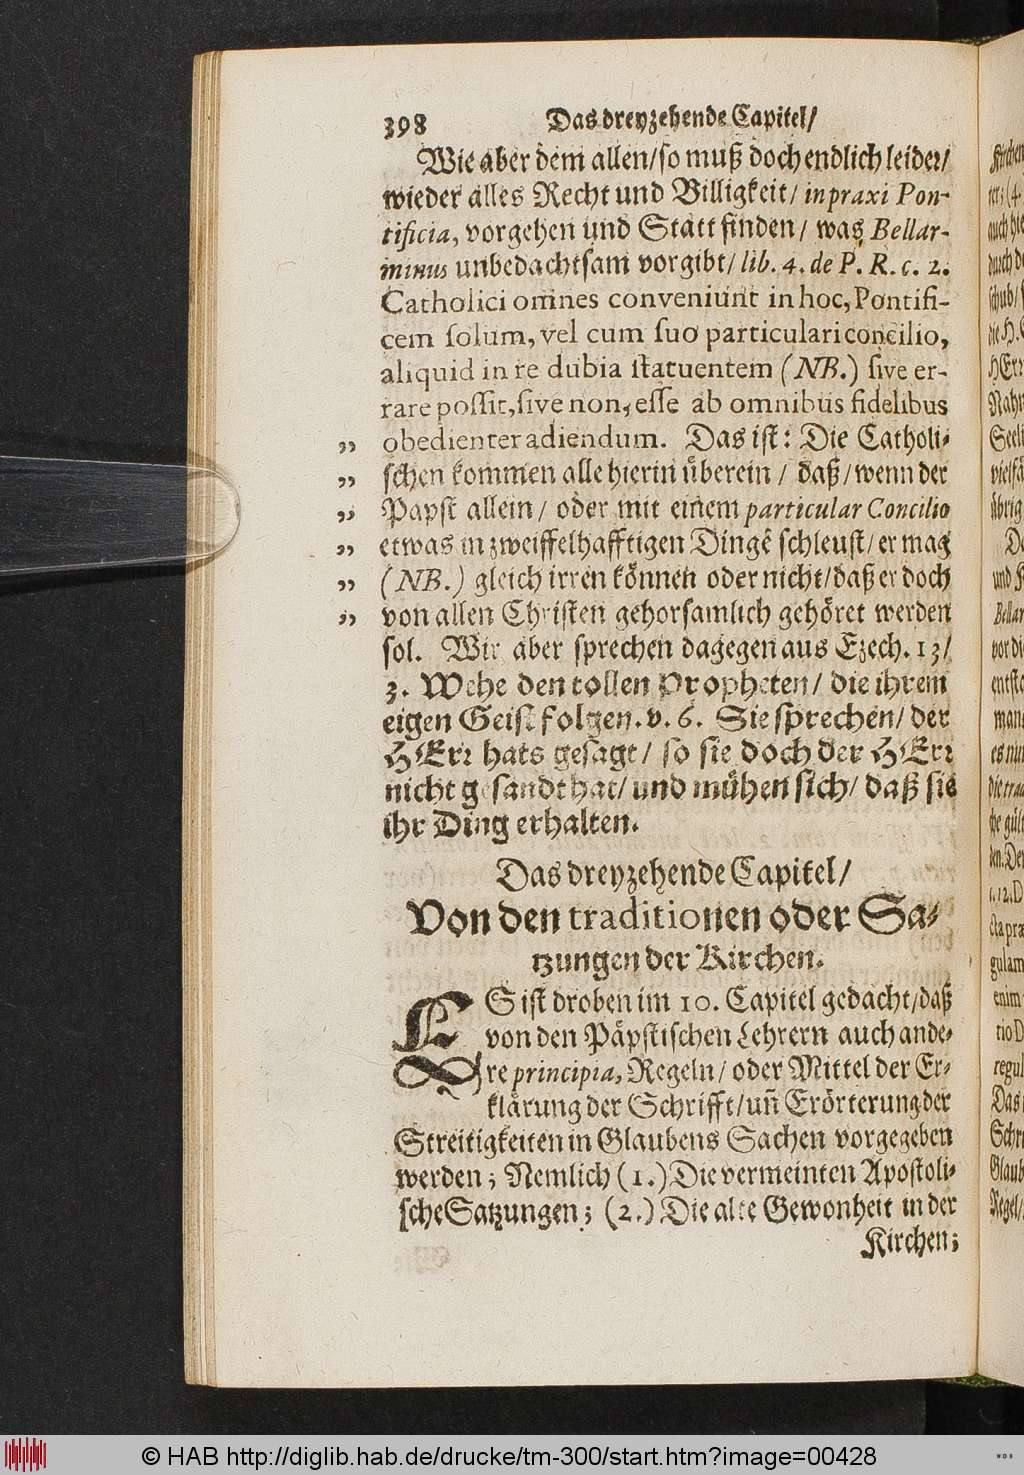 398 Das dreyzehende Capitel/
Wie aber dem allen/so muß doch endlich leider/
wieder alles Recht und Billigkeit/ in praxi Pon-
tificia, vorgehen und Statt finden/ was Bellar-
minus unbedachtsam vorgibt/ lib. 4. de P. R. c. 2.
Catholici omnes conveniunt in hoc, Pontifi-
cem solum, vel cum suo particulari concilio,
aliquid in re dubia statuentem (NB.) sive er-
rare possit, sive non, esse ab omnibus fidelibus
„ obedienter adiendum. Das ist: Die Catholi-
„ schen kommen alle hierin überein / daß/wenn der
„ Papst allein/ oder mit einem particular Concilio
„ etwas in zweiffelhafftigen Dingē schleust/ er mag
„ (NB.) gleich irren können oder nicht/daß er doch
„ von allen Christen gehorsamlich gehöret werden
sol. Wir aber sprechen dagegen aus Ezech. 13/
3. Wehe den tollen Propheten/ die ihrem
eigen Geist folgen. v. 6. Sie sprechen/ der
HErr hats gesagt/ so sie doch der HErr
nicht gesandt hat/ und mühen sich/ daß sie
ihr Ding erhalten.
Das dreyzehende Capitel/
Von den traditionen oder Sa-
tzungen der Kirchen.
ES ist droben im 10. Capitel gedacht/daß
von den Päpstischen Lehrern auch ande-
re principia, Regeln/ oder Mittel der Er-
klärung der Schrifft/uñ Erörterung der
Streitigkeiten in Glaubens Sachen vorgegeben
werden; Nemlich (1.) Die vermeinten Apostoli-
sche Satzungen; (2.) Die alte Gewonheit in der
Kirchen;
© HAB http://diglib.hab.de/drucke/tm-300/start.htm?image=00428